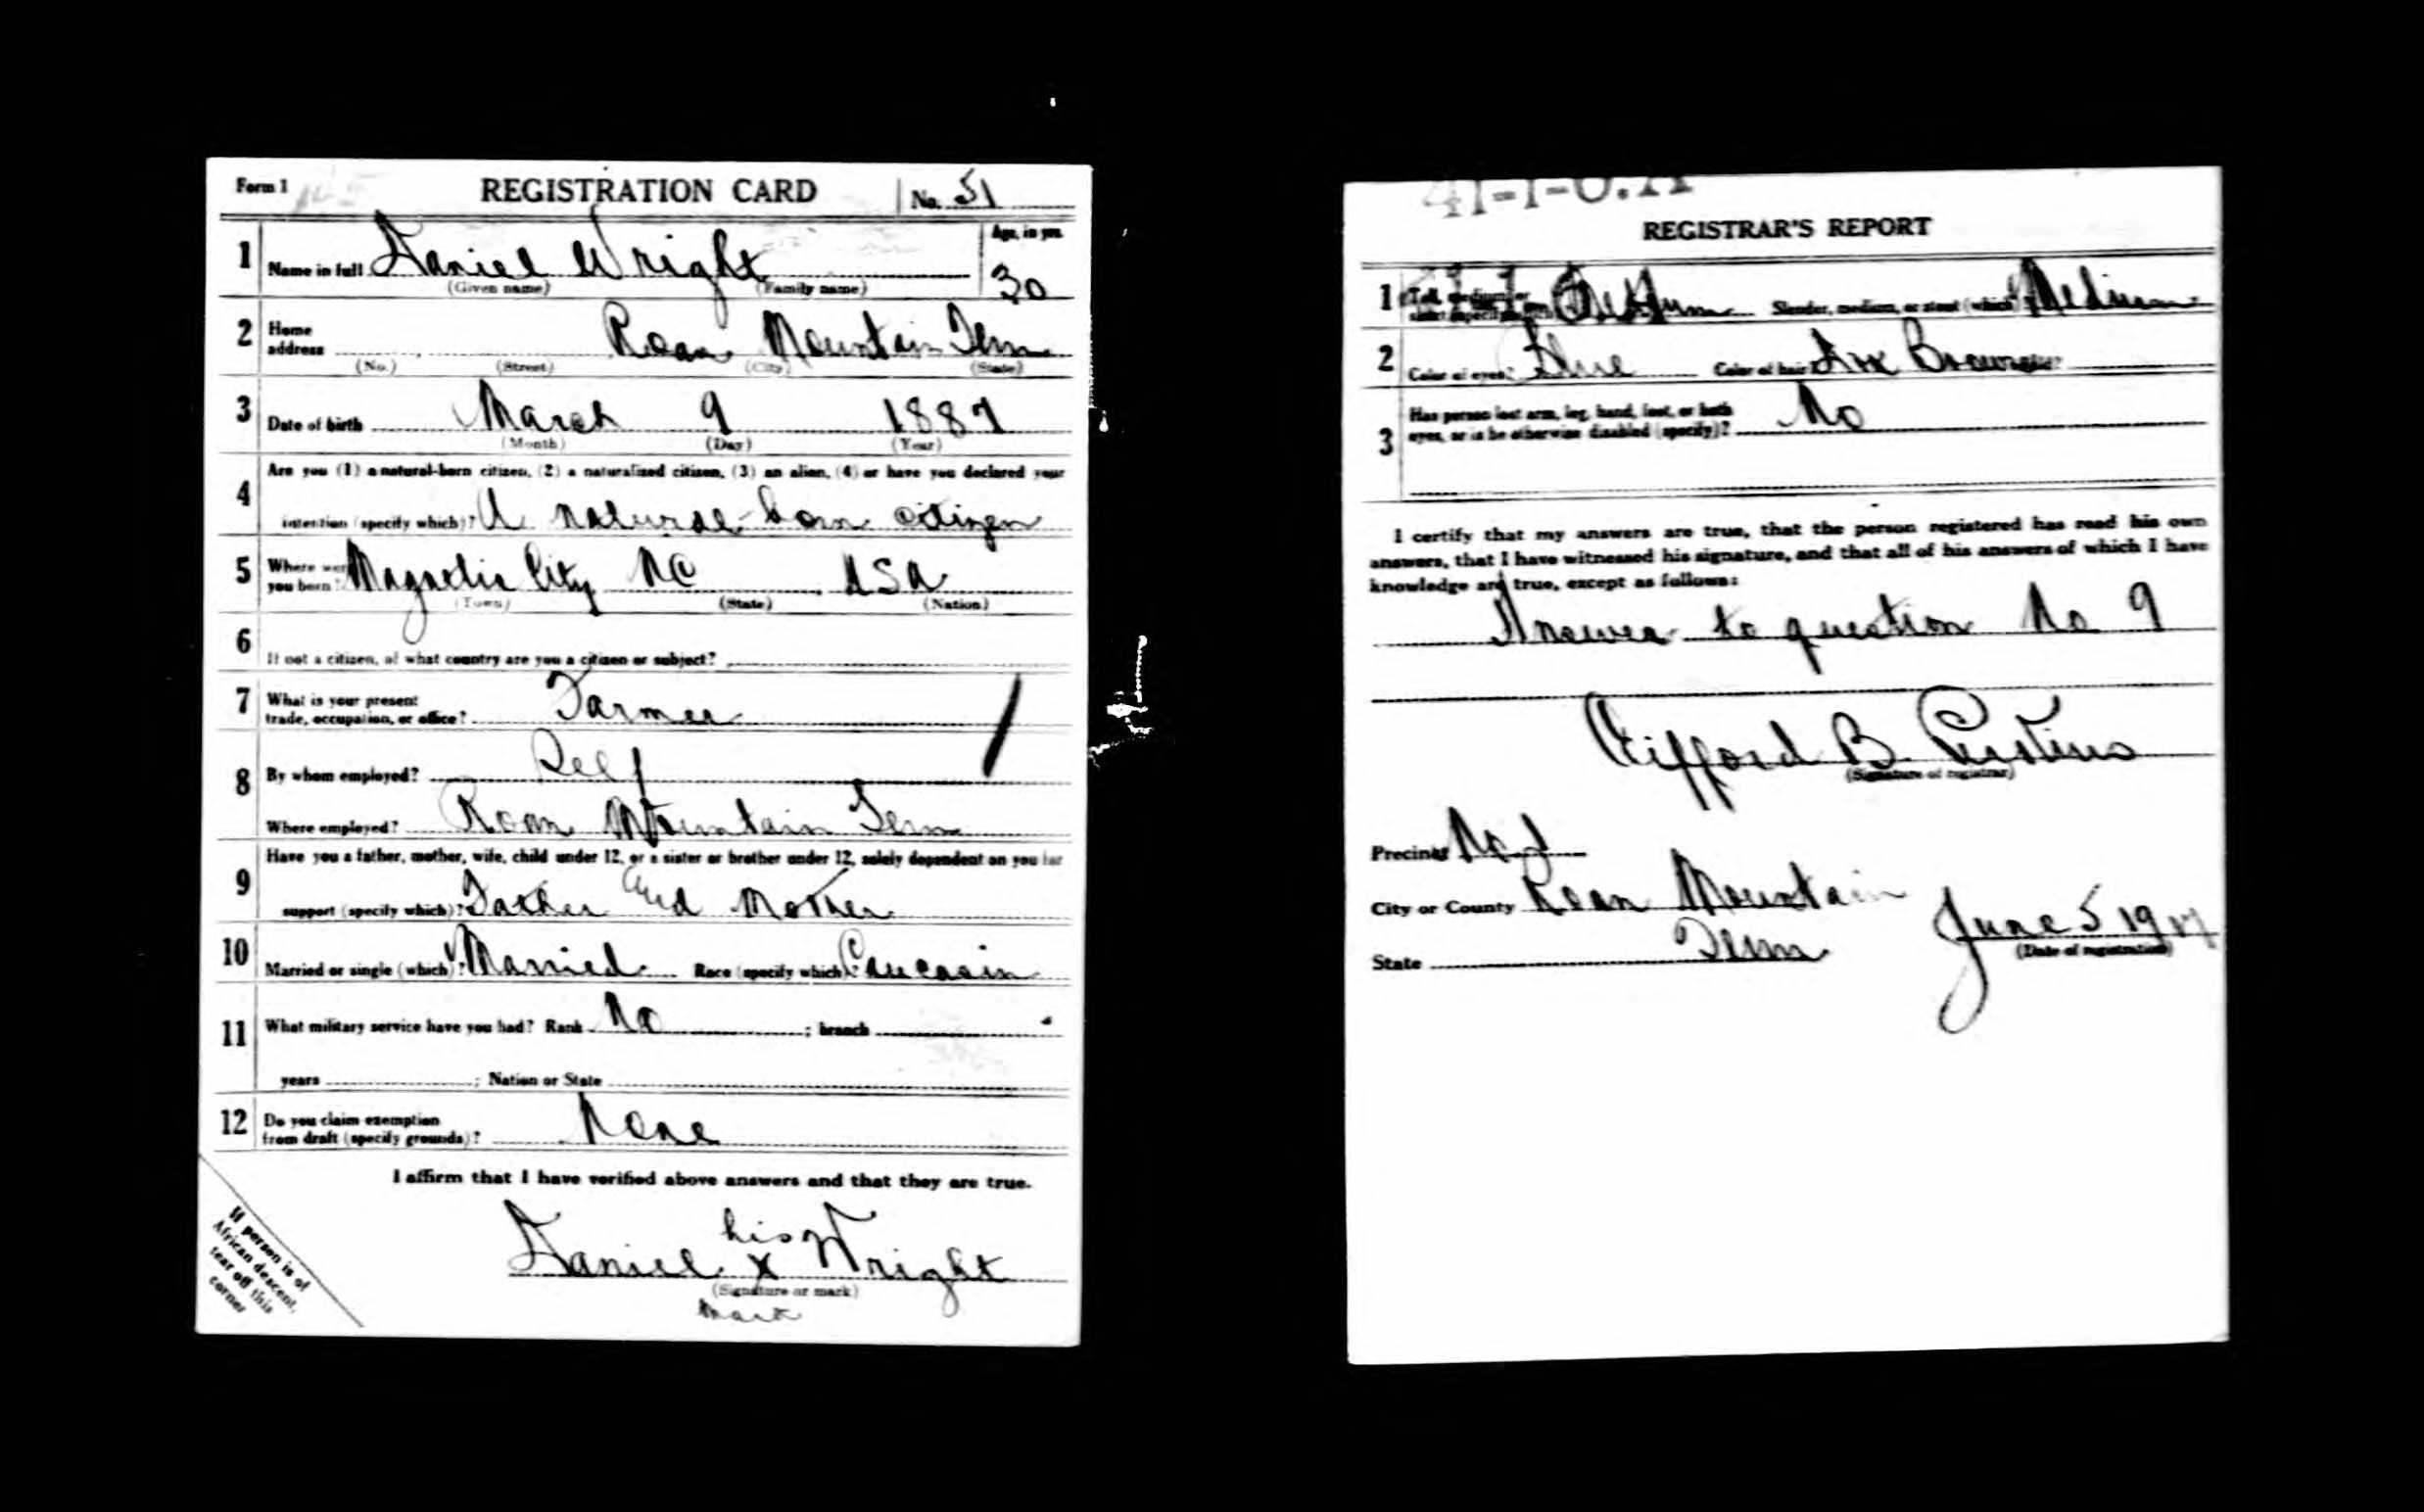 Form 1 REGISTRATION CARD No. 51
1 Name in full Daniel Wright Age, in yrs. 30
(Given name) (Family name)
2 Home address Roan Mountain Tenn
(No.) (Street) (City) (State)
3 Date of birth March 9 1887
(Month) (Day) (Year)
4 Are you (1) a natural-born citizen, (2) a naturalized citizen, (3) an alien, (4) or have you declared your
intention (specify which)? A natural-born citizen
5 Where were you born? Magnetic City NC USA
(Town) (State) (Nation)
6 If not a citizen, of what country are you a citizen or subject?
7 What is your present
trade, occupation, or office? Farmer
8 By whom employed? Self
Where employed? Roan Mountain Tenn
9 Have you a father, mother, wife, child under 12, or a sister or brother under 12, solely dependent on you for
support (specify which)? Father and Mother
10 Married or single (which)? Married Race (specify which)? Caucasin
11 What military service have you had? Rank No ; branch
years ; Nation or State
12 Do you claim exemption
from draft (specify grounds)? None
I affirm that I have verified above answers and that they are true.
his
Daniel x Wright
(Signature or mark)
mark
If person is of
African descent,
tear off this
corner
REGISTRAR'S REPORT
1 Tall, medium, or
short (specify which)? Medium Slender, medium, or stout (which)? Medium
2 Color of eyes? Blue Color of hair? Brown
3 Has person lost arm, leg, hand, foot, or both
eyes, or is he otherwise disabled (specify)? No
I certify that my answers are true, that the person registered has read his own
answers, that I have witnessed his signature, and that all of his answers of which I have
knowledge are true, except as follows:
Answer to question No 9
Clifford B.
(Signature of registrar)
Precinct No
City or County Roan Mountain
State Tenn June 5 1917
(Date of registration)